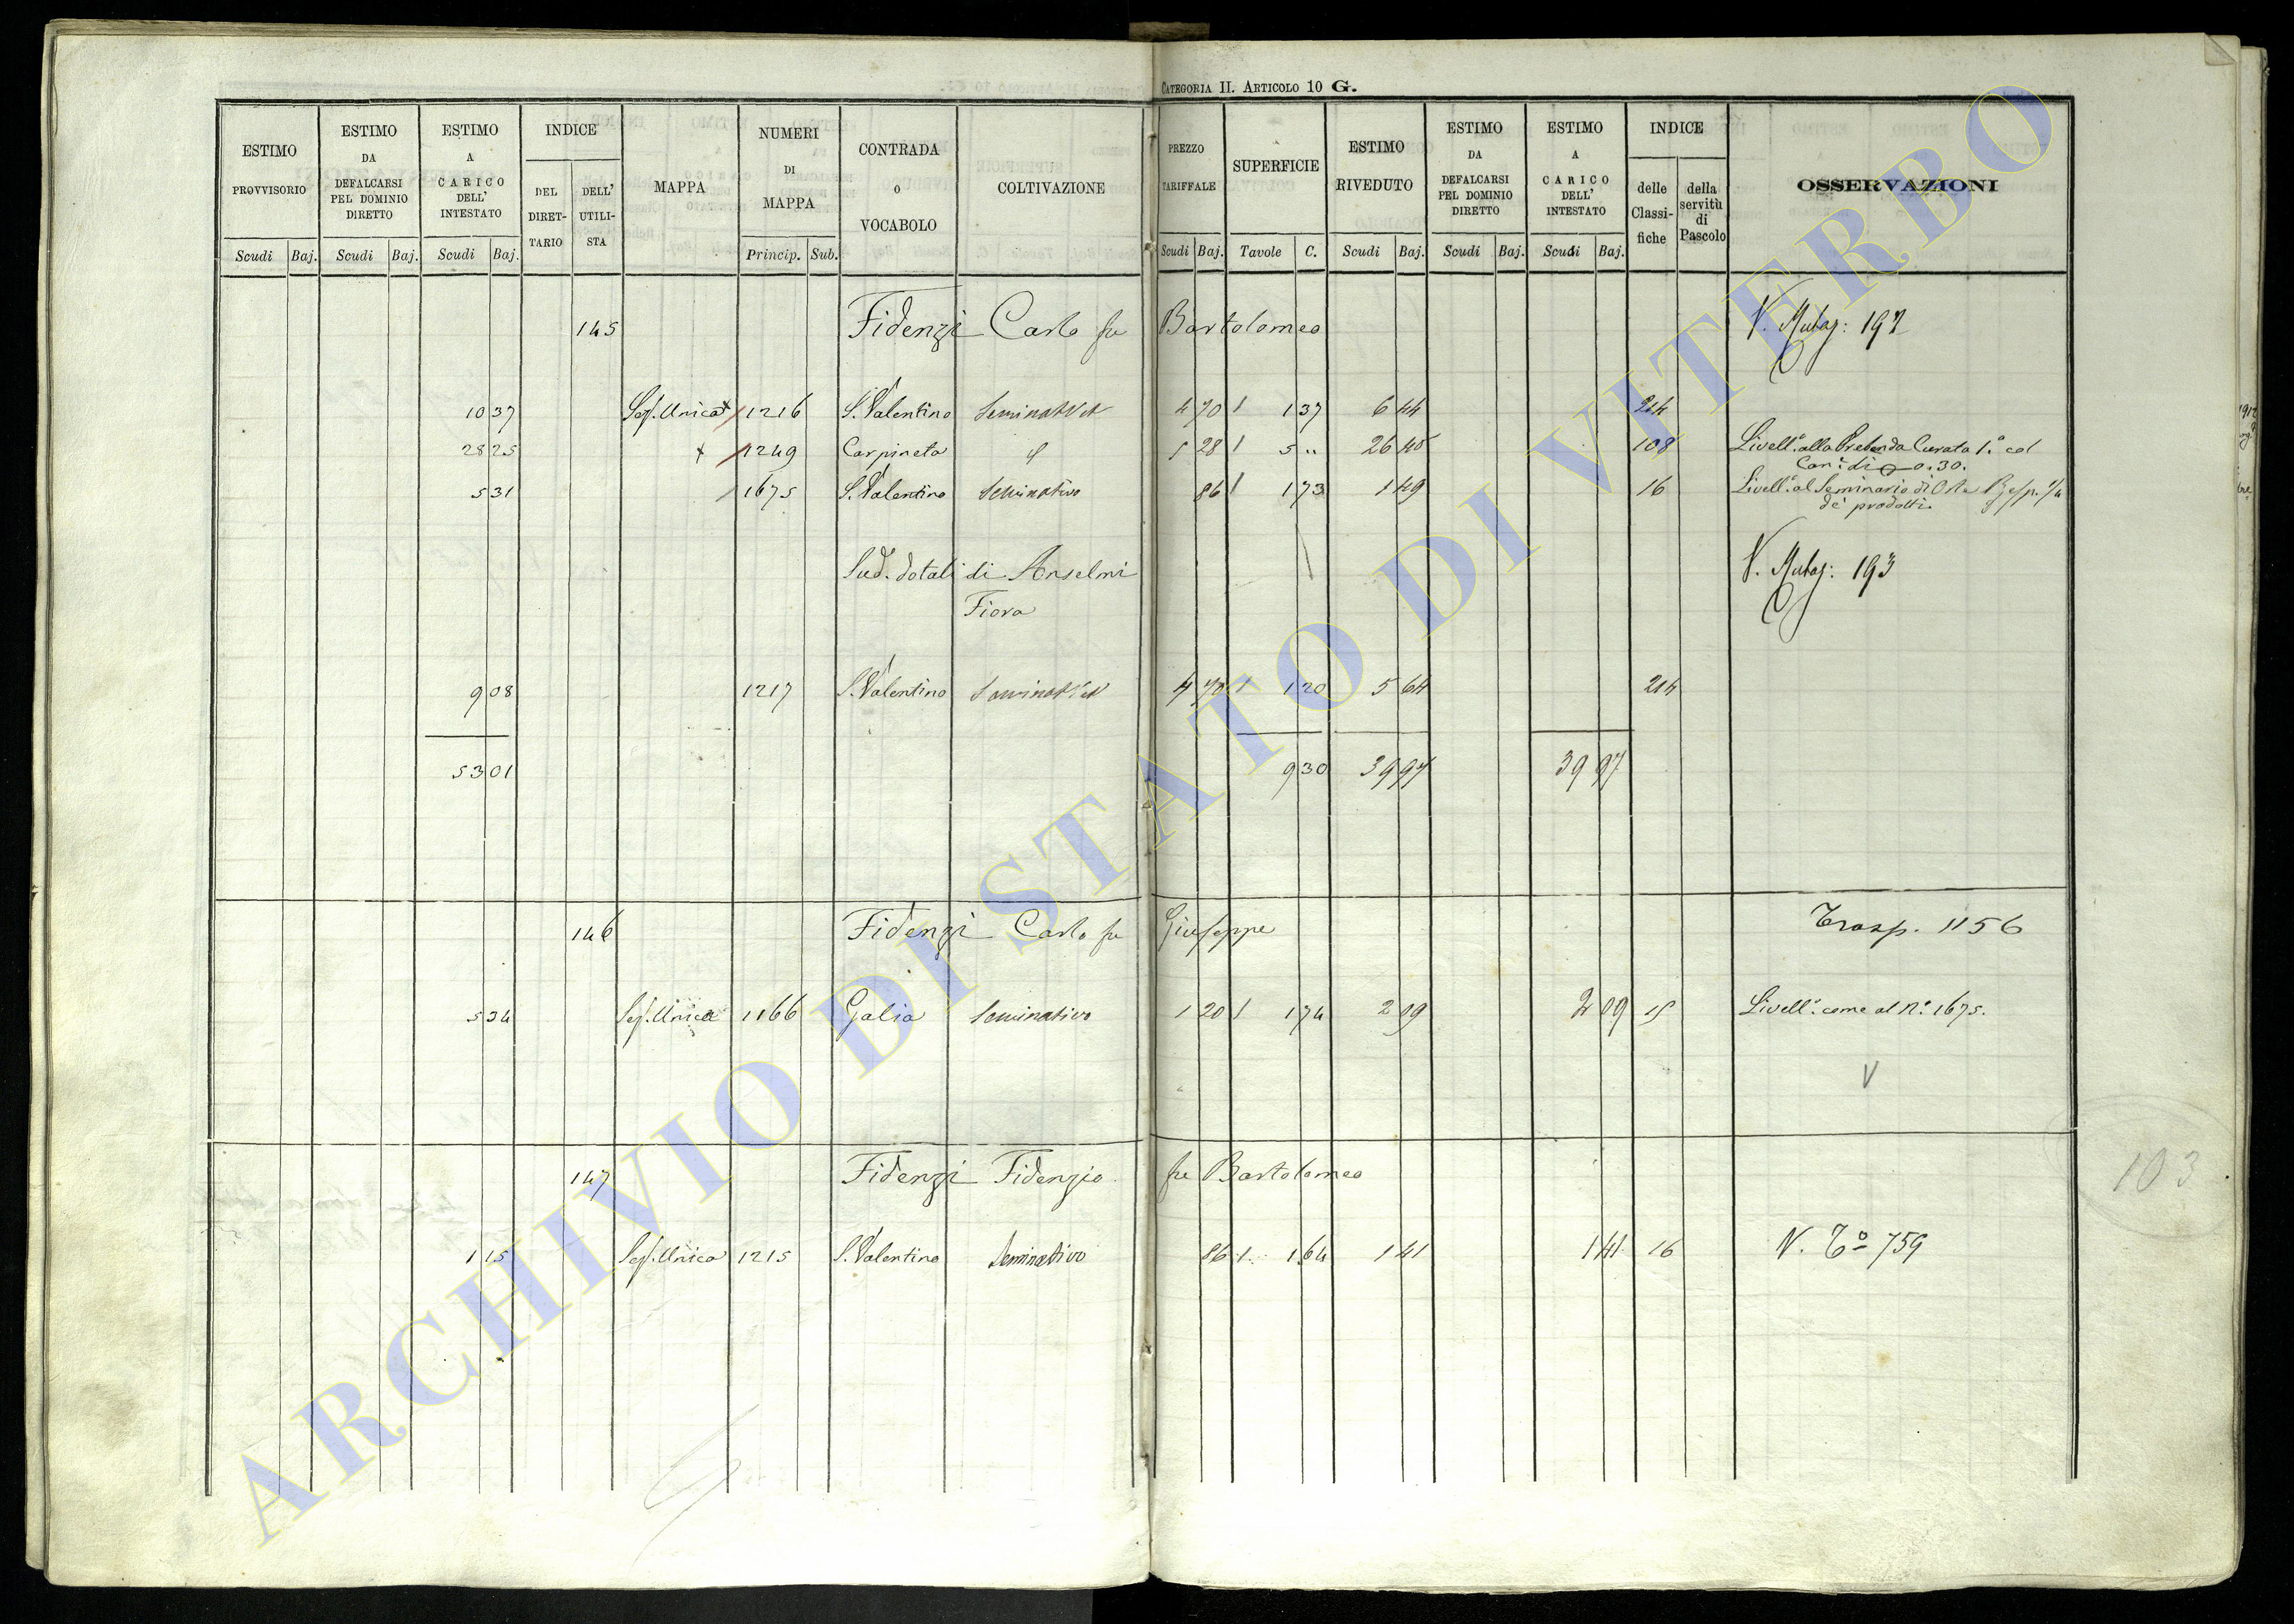 CATEGORIA II. ARTICOLO 10 G.
ESTIMO PROVVISORIO Scudi Baj.
ESTIMO DA DEFALCARSI PEL DOMINIO DIRETTO Scudi Baj.
ESTIMO A CARICO DELL' INTESTATO Scudi Baj.
INDICE DEL DIRET-TARIO DELL' UTILI-STA
MAPPA
NUMERI DI MAPPA Princip. Sub.
CONTRADA O VOCABOLO
COLTIVAZIONE
PREZZO TARIFFALE Scudi Baj.
SUPERFICIE Tavole C.
ESTIMO RIVEDUTO Scudi Baj.
ESTIMO DA DEFALCARSI PEL DOMINIO DIRETTO Scudi Baj.
ESTIMO A CARICO DELL' INTESTATO Scudi Baj.
INDICE delle Classi-fiche della servitù di Pascolo
OSSERVAZIONI
145 Fidenzi Carlo fu Bartolomeo V. Mutaz: 192
10 37 Sez. Unica 1216 S. Valentino Seminat Vit 4 70 1 1 37 6 44 214
28 25 1249 Carpineta 5 28 1 5 " 26 40 108 Livell.º alla Prebenda Curata 1.ª col
Can: di 0.30.
5 31 1675 S. Valentino Seminativo 86 1 1 73 1 49 16 Livell.º al Seminario di Orte Risp. 1/4
de' prodotti.
Sud. dotali di Anselmi V. Mutaz: 193
Fiora
9 08 1217 S. Valentino Seminat Vit 4 70 1 1 20 5 64 214
53 01 9 30 39 97 39 97
146 Fidenzi Carlo fu Giuseppe Trasp. 1156
5 34 Sez. Unica 1166 Galia Seminativo 1 20 1 1 74 2 09 2 09 15 Livell.º come al N.º 1675.
V
147 Fidenzi Fidenzio fu Bartolomeo
103
1 15 Sez. Unica 1215 S. Valentino Seminativo 86 1 1 64 1 41 1 41 16 V. Tº 759
ARCHIVIO DI STATO DI VITERBO